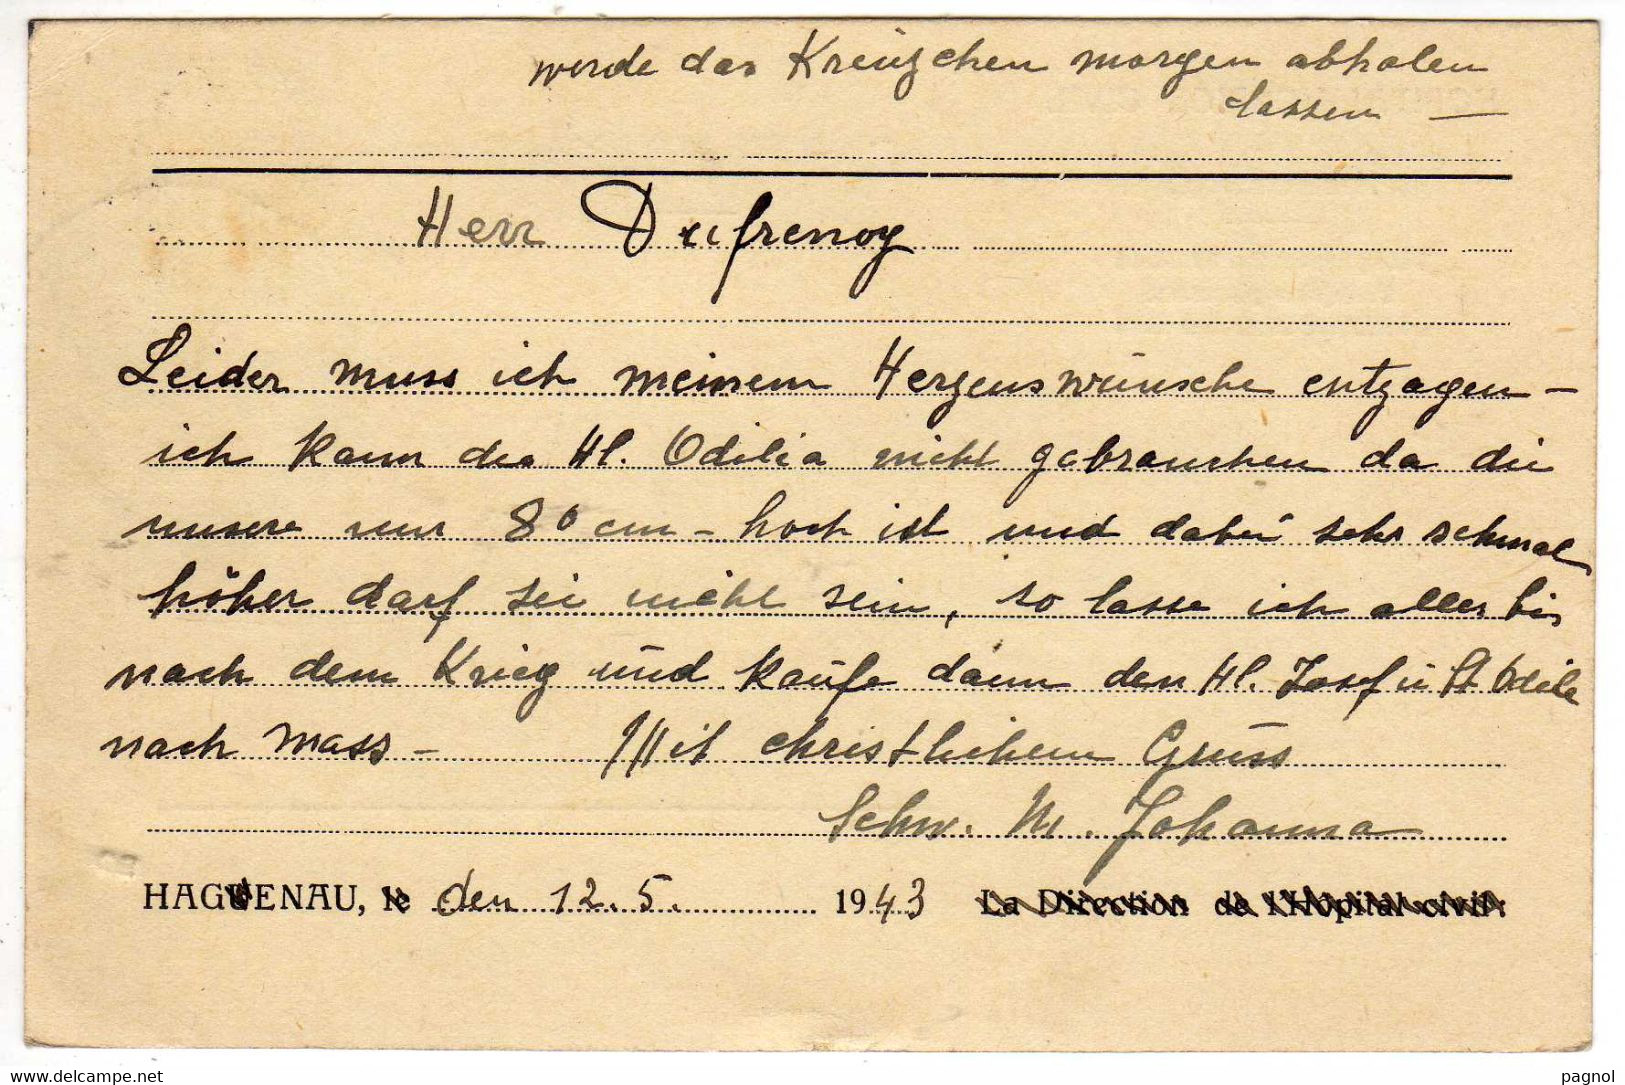 werde das Kreuzchen morgen abholen
lassen —
Herr Dufrenoy
Leider muss ich meinem Herzenswünsche entzagen —
ich kann die Hl. Odilia nicht gebrauchen da die
unsere nur 80 cm - hoch ist und dabei sehr schmal
höher darf sie nicht sein, so lasse ich alles bis
nach dem Krieg und kaufe dann den Hl. Josef u St Odile
nach mass — Mit christlichem Gruss
Schw. M. Johanna
HAGUENAU, le den 12.5. 1943 La Direction de l'Hôpital civil:
www.delcampe.net pagnol